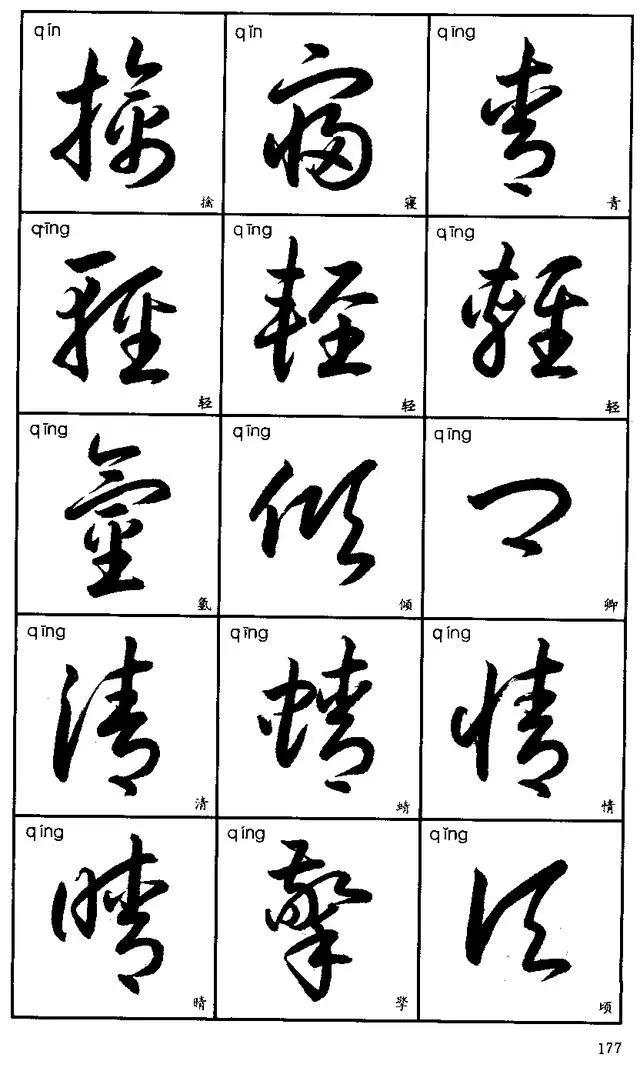 qín
擒
擒
qǐn
寢
寝
qīng
青
青
qīng
輕
轻
qīng
輕
轻
qīng
輕
轻
qīng
氫
氢
qīng
傾
倾
qīng
卿
卿
qīng
清
清
qīng
蜻
蜻
qíng
情
情
qíng
晴
晴
qíng
擎
擎
qǐng
頃
顷
177